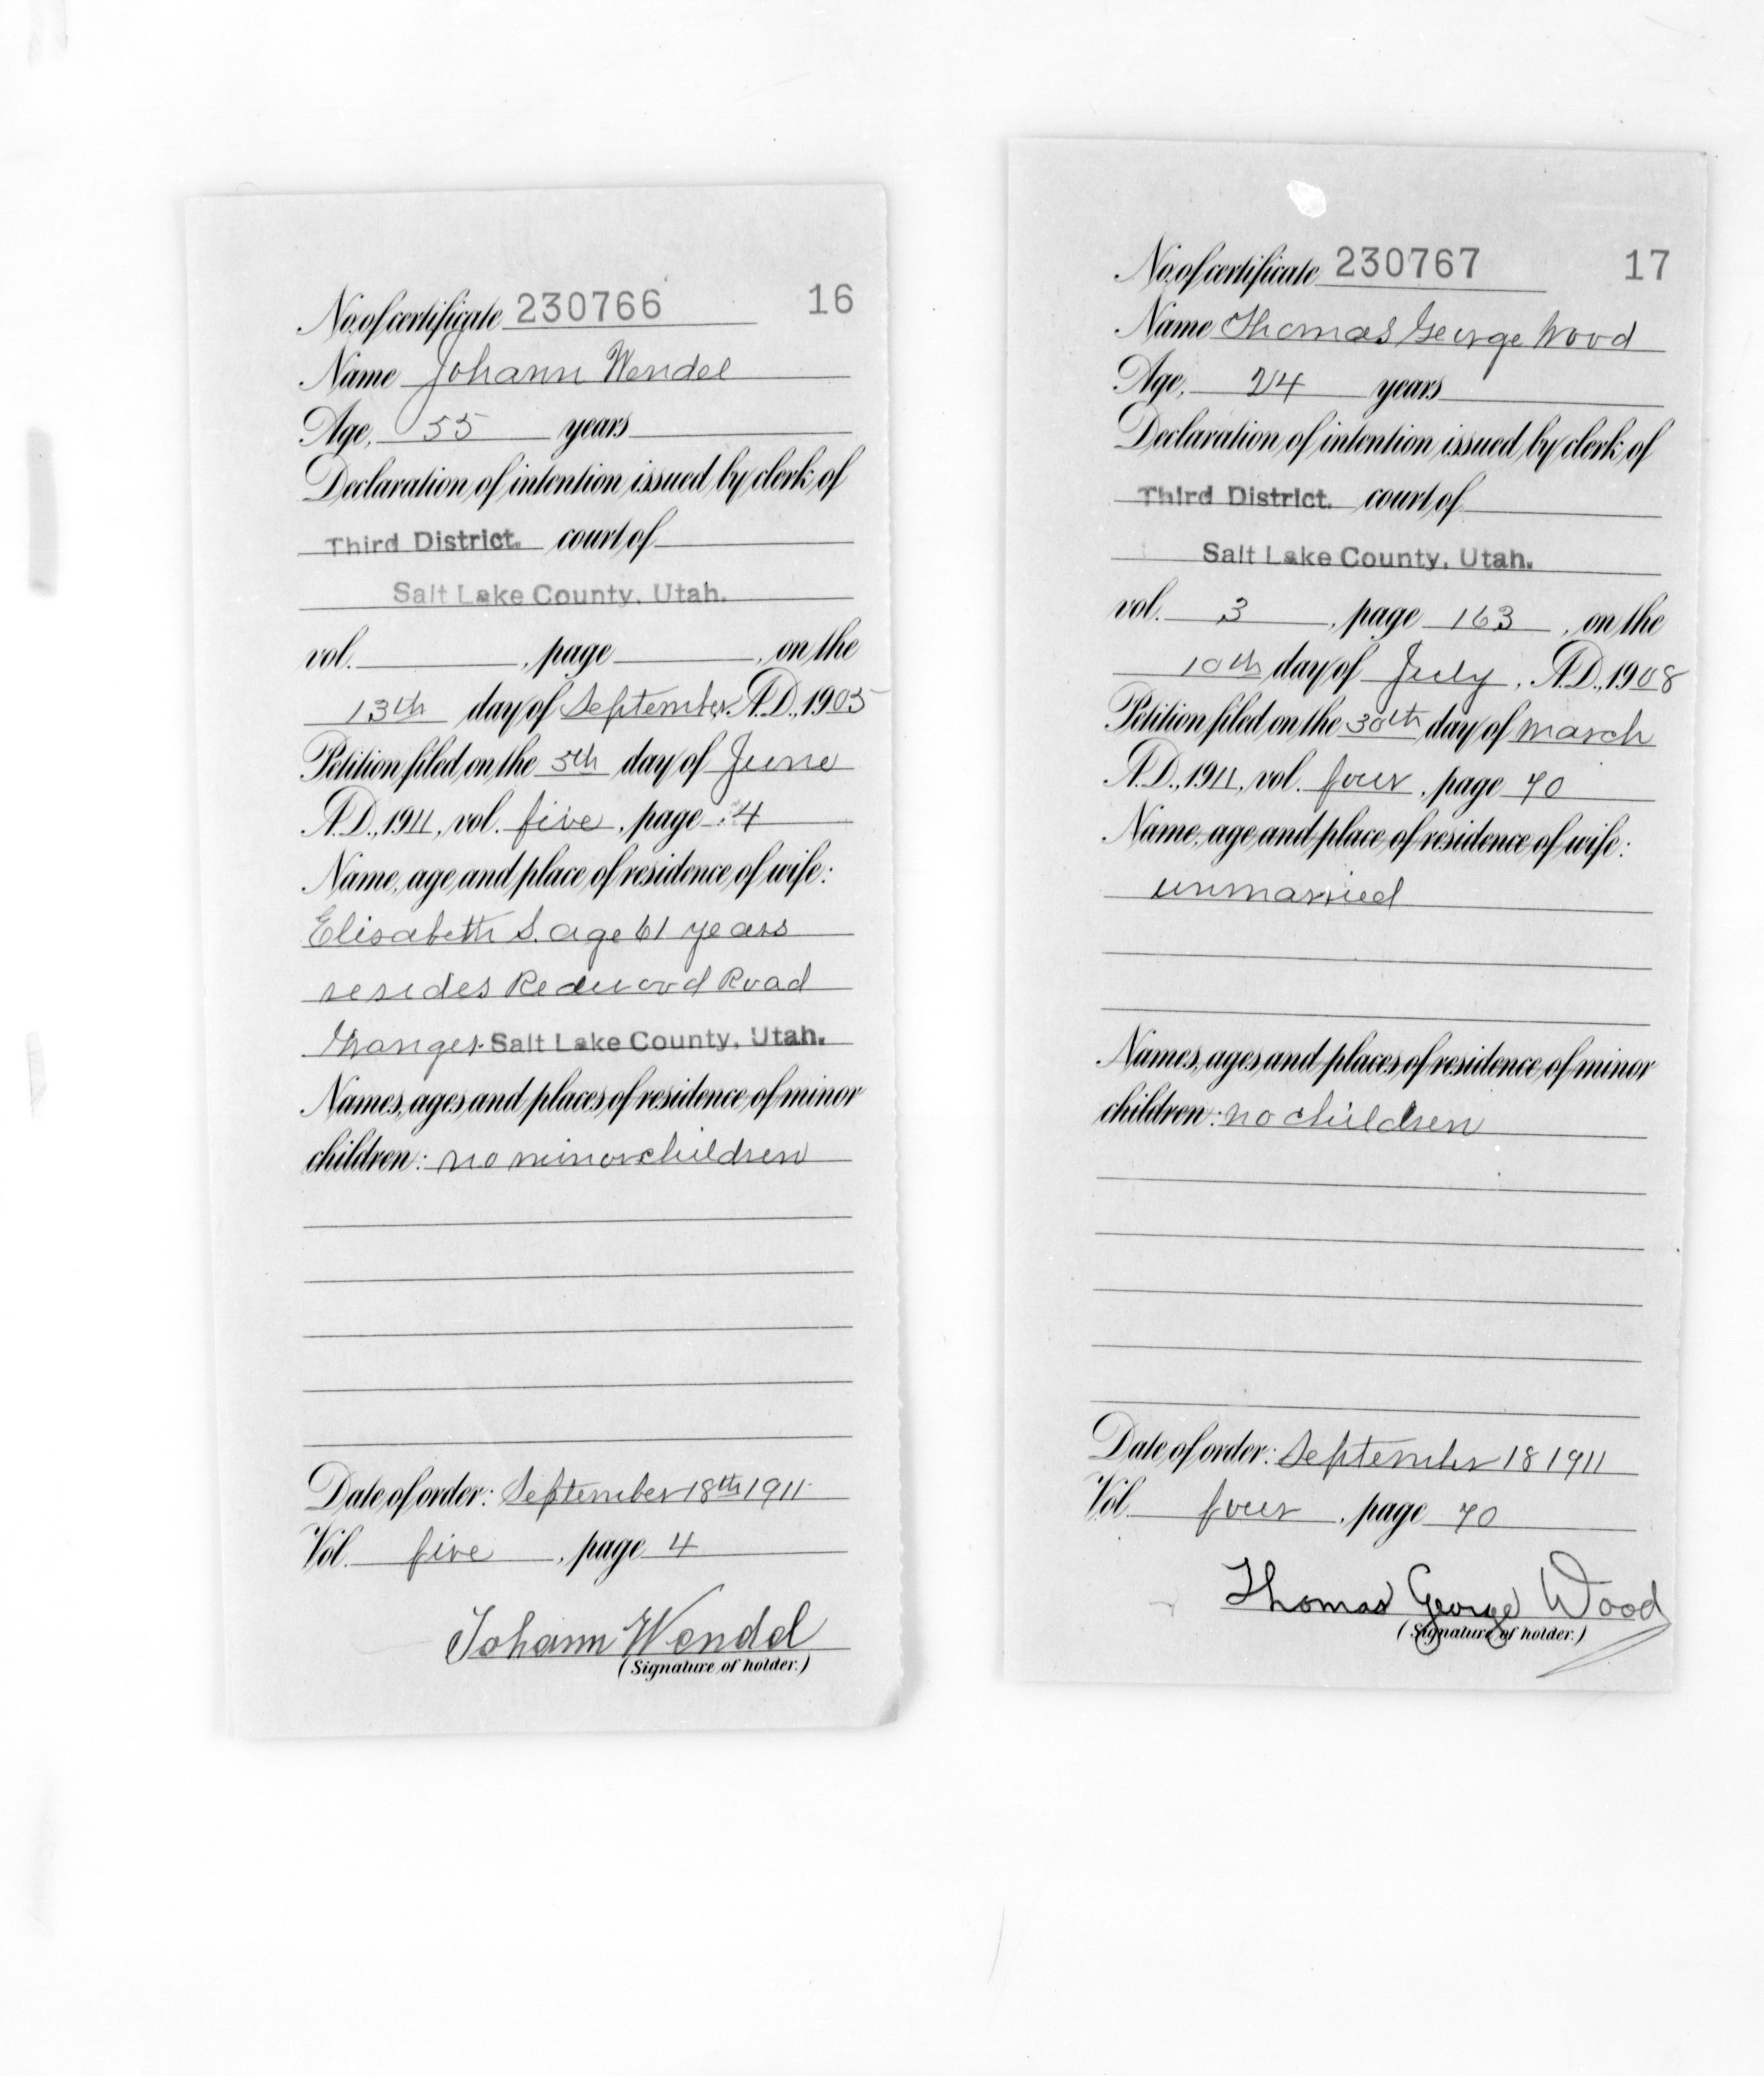 No. of certificate 230766 16
Name Johann Wendel
Age, 55 years
Declaration of intention issued by clerk of
Third District. court of
Salt Lake County, Utah.
vol. , page , on the
13th day of September, A.D., 1905
Petition filed on the 5th day of June
A.D., 1911, vol. five, page 4
Name, age and place of residence of wife:
Elisabeth S. age 61 years
resides Redwood Road
Granger Salt Lake County, Utah.
Names, ages and places of residence of minor
children: no minor children
Date of order: September 18th 1911
Vol. five, page 4
Johann Wendel
(Signature of holder.)
No. of certificate 230767 17
Name Thomas George Wood
Age, 24 years
Declaration of intention issued by clerk of
Third District. court of
Salt Lake County, Utah.
vol. 3, page 163, on the
10th day of July, A.D., 1908
Petition filed on the 30th day of March
A.D., 1911, vol. four, page 70
Name, age and place of residence of wife:
unmarried
Names, ages and places of residence of minor
children: no children
Date of order: September 18 1911
Vol. four, page 70
Thomas George Wood
(Signature of holder.)